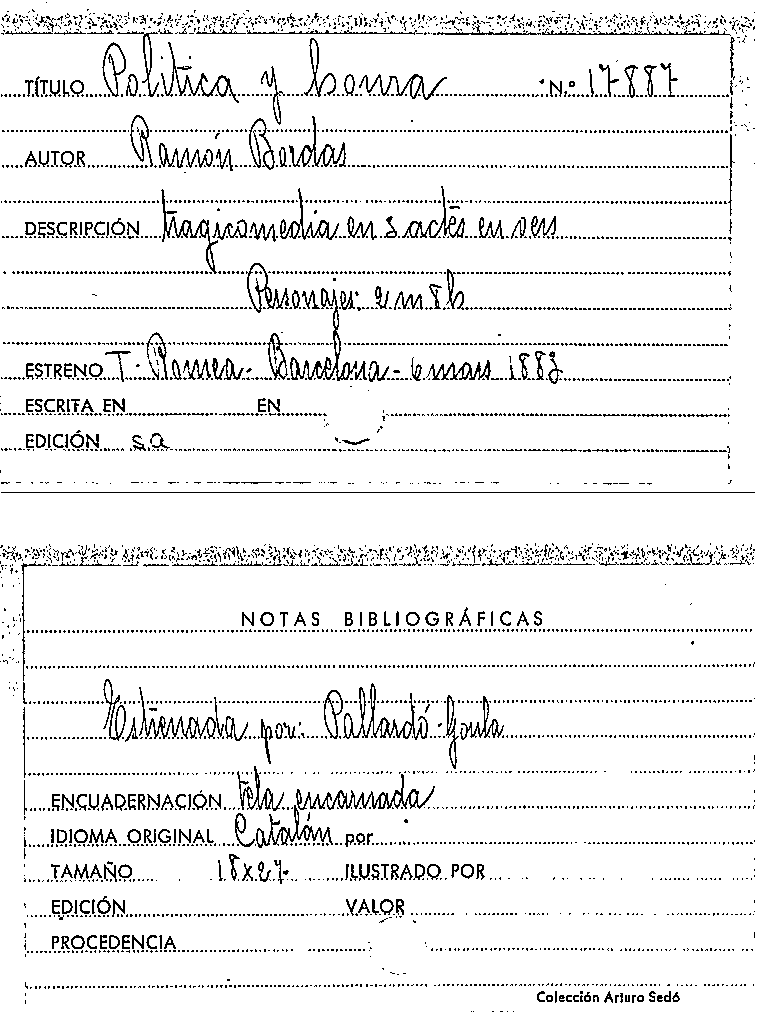 TÍTULO Politica y honra N.º 17887
AUTOR Ramón Bordas
DESCRIPCIÓN tragicomedia en 3 actes en vers
Personajes: 2 m 8 h
ESTRENO T. Romea - Barcelona - 6 mars 1883
ESCRITA EN EN
EDICIÓN s.a
NOTAS BIBLIOGRÁFICAS
Estrenada por: Pallardó - Goula
ENCUADERNACIÓN tela encarnada
IDIOMA ORIGINAL Catalán por
TAMAÑO 18x27 ILUSTRADO POR
EDICIÓN VALOR
PROCEDENCIA
Colección Arturo Sedó